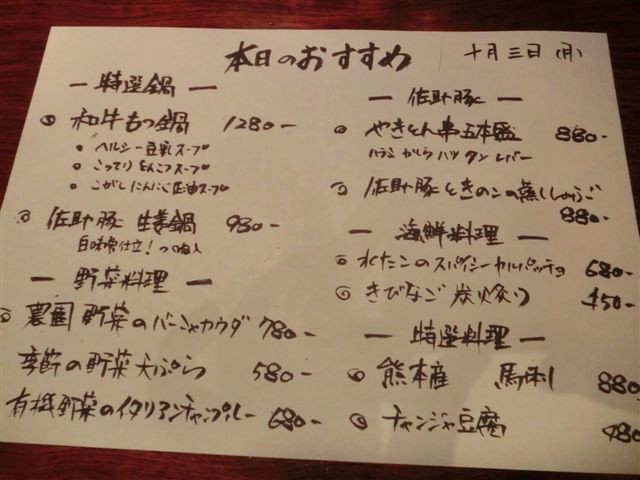 本日のおすすめ
十月三日(月)
― 特選鍋 ―
◎ 和牛もつ鍋 1280-
• ヘルシー豆乳スープ
• こってりとんこつスープ
• こがしにんにく正油スープ
◎ 佐助豚 生姜鍋 980-
白味噌仕立!つくね入
― 野菜料理 ―
◎ 農園野菜のバーニャカウダ 780-
季節の野菜天ぷら 580-
有機野菜のイタリアンチャンプルー 680-
― 佐助豚 ―
◎ やきとん串五本盛 880-
ハラミ かしら ハツ タン レバー
◎ 佐助豚ときのこの蒸ししゃぶ
880-
― 海鮮料理 ―
◎ 水だこのスパイシーカルパッチョ 680-
◎ きびなご 炭火炙り 450-
― 特選料理 ―
◎ 熊本産 馬刺 880
◎ チャンジャ豆腐 480